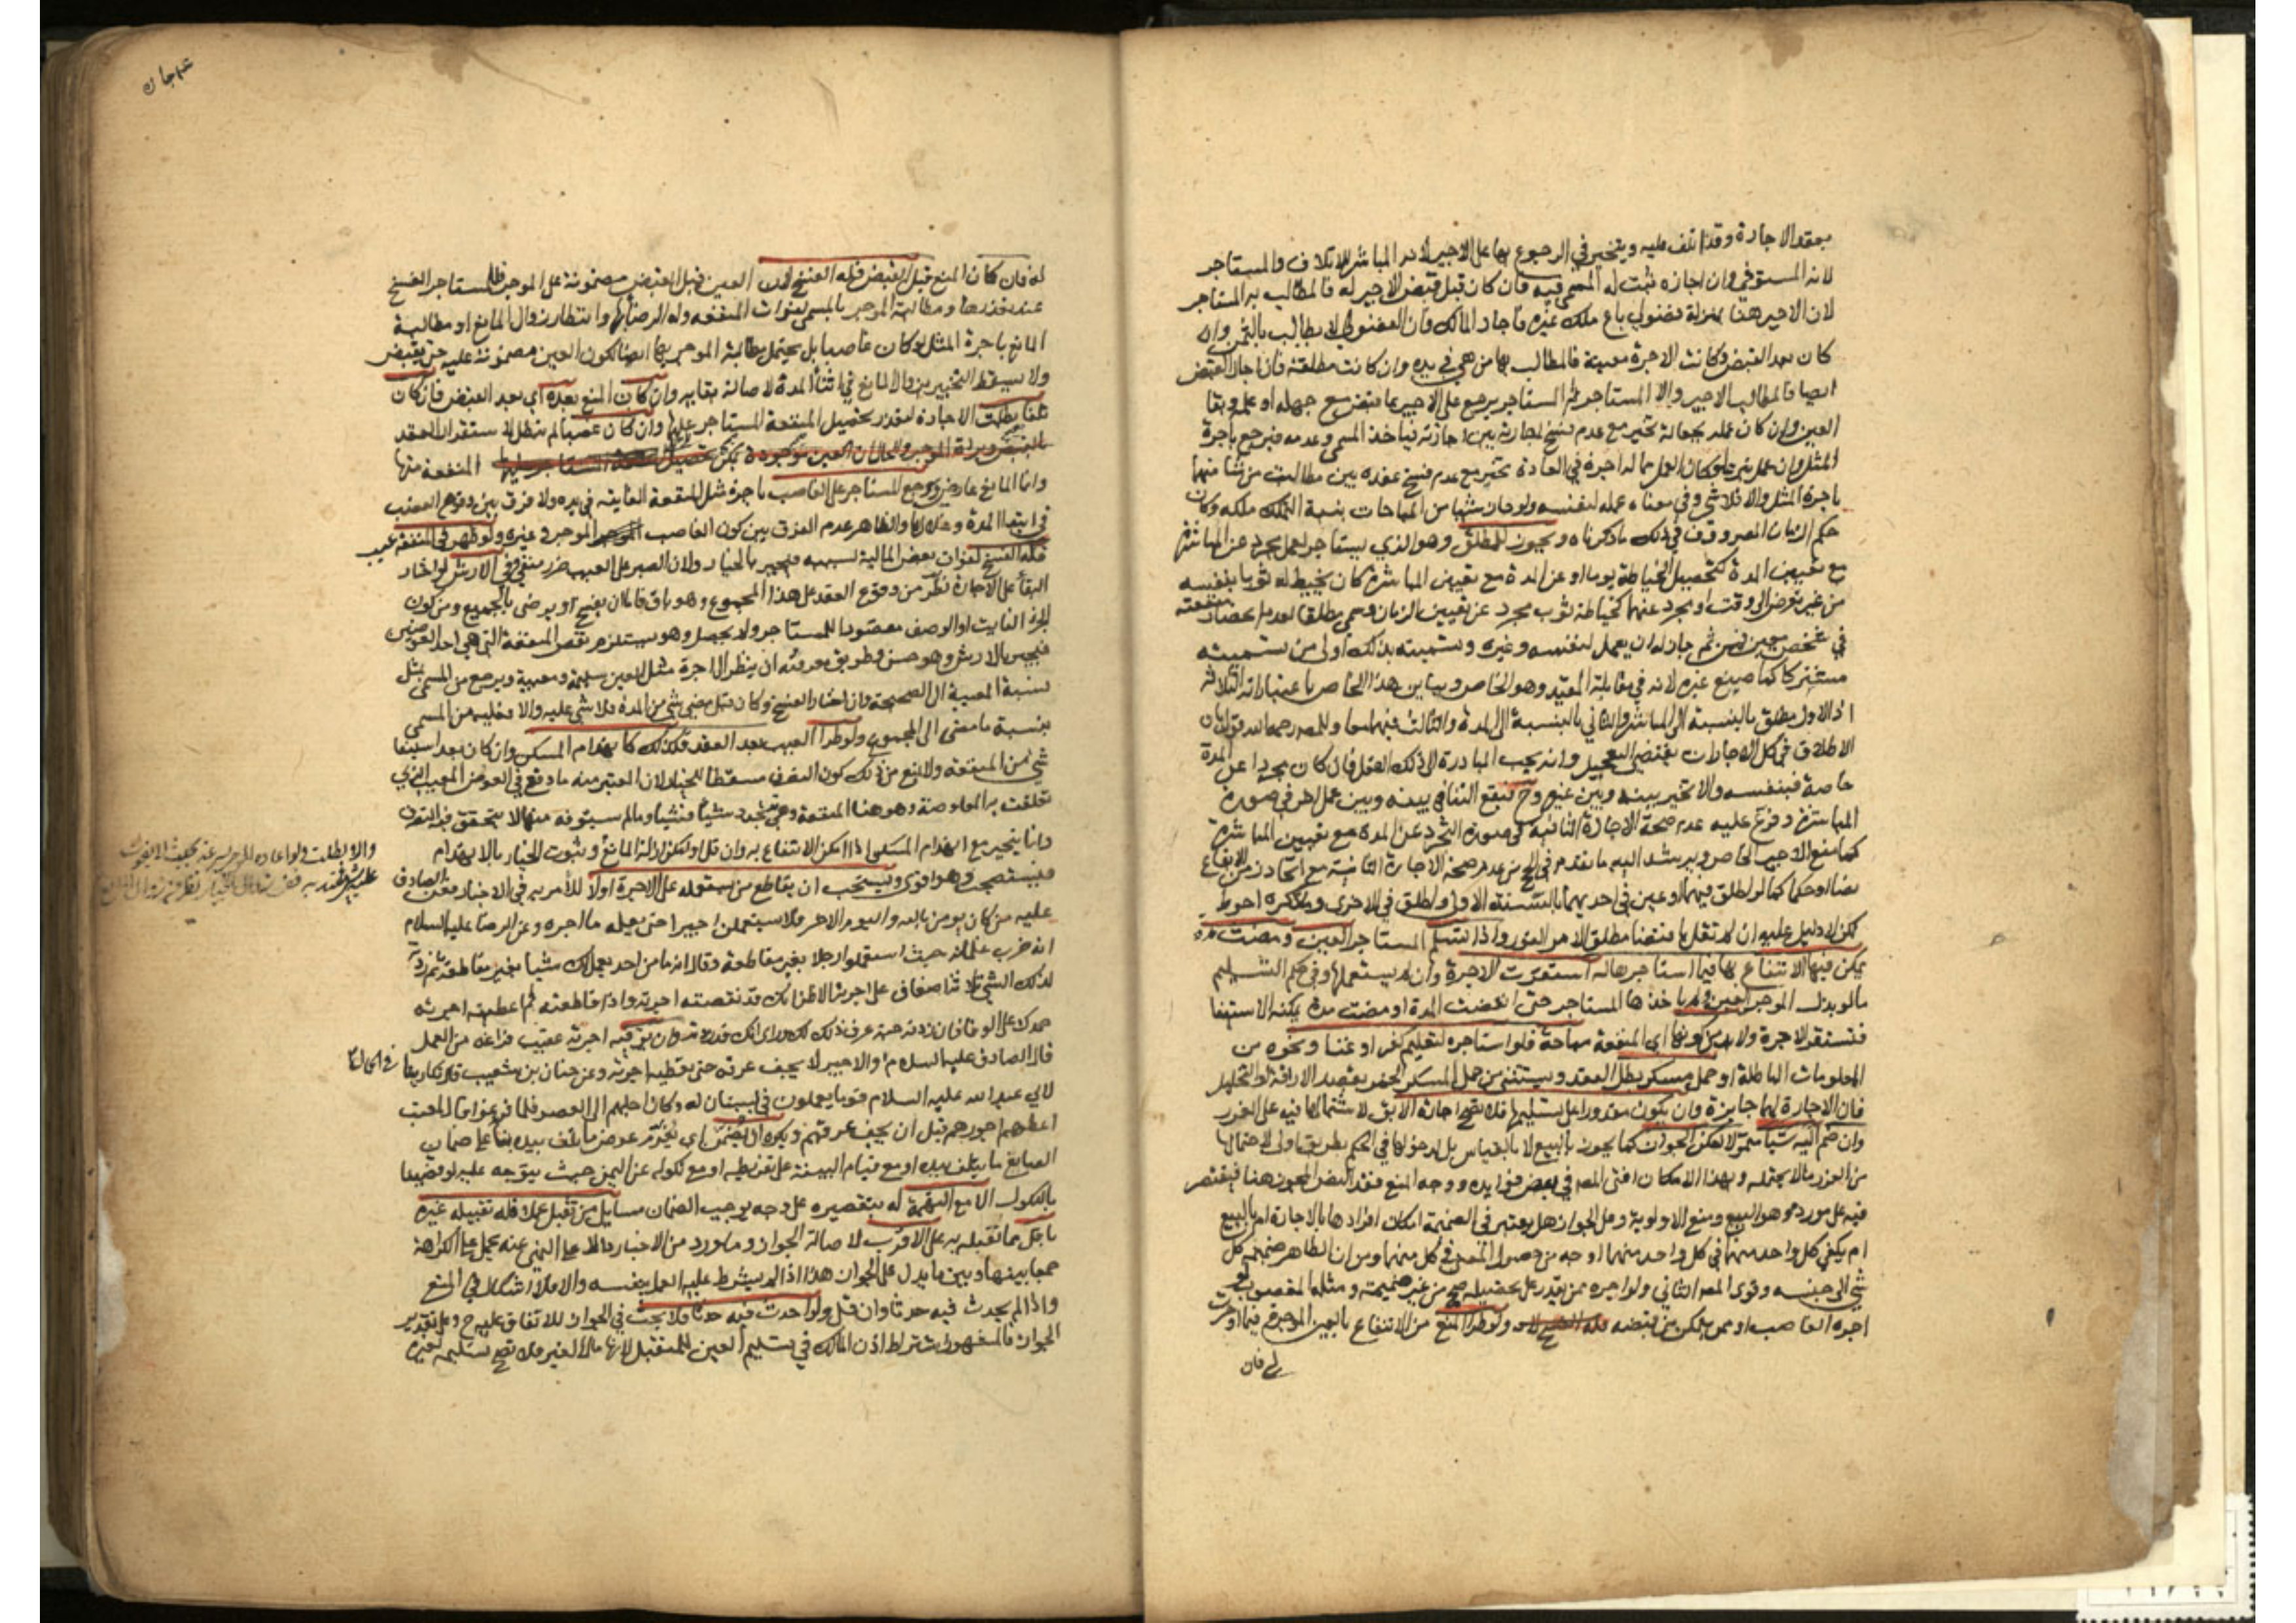 بعقد الاجارة وقد اتلف عليه ويتخير في الرجوع بها على الاجير لانه المباشر للاتلاف والمستاجر
لانه المستوفي وان اجازه ثبت له المسمى فيه فان كان قبل قبض الاجير له فالمطالب به المستاجر
لان الاجير هنا بمنزلة فضولي باع ملك غيره فاجاز المالك فان الفضولي لا يطالب بالثمن وان
كان بعد القبض وكانت الاجرة معينة فالمطالب بها من هي في يده وان كانت مطلقة فان اجاز القبض
ايضا فالمطالب الاجير والا المستاجر ثم المستاجر يرجع على الاجير بما قبض مع جهله او علمه وبقا
العين وان كان عمله بجعالة تخير مع عدم فسخ اجارته بين اجازته فياخذ المسمى وعدمه فيرجع باجرة
المثل وان عمل تبرعا وكان العمل مما له اجرة في العادة تخير مع عدم فسخ عقده بين مطالبة من شا منهما
باجرة المثل والا فلا شي وفي معناه عمله لنفسه ولو حاز شيئا من المباحات بنية التملك ملكه وكان
حكم الزمان المصروف في ذلك ما ذكرناه ويجوز للمطلق وهو الذي يستاجر لعمل مجرد عن المباشرة
مع تعيين المدة كتحصيل الخياطة يوما او عن المدة مع تعيين المباشرة كان يخيط له ثوبا بنفسه
من غير تعرض الى وقت او مجرد عنهما كخياطة ثوب مجرد عن تعيين الزمان وسمي مطلقا لعدم انحصار منفعته
في شخص معين فمن ثم جاز له ان يعمل لنفسه وغيره وتسميته بذلك اولى من تسميته
مشتركا كما صنع غيره لانه في مقابلة المقيد وهو الخاص ويباين هذا الخاص باعتباراته الثلاثة
اذ الاول مطلق بالنسبة الى المباشر والثاني بالنسبة الى المدة والثالث فيهما معا وللمصر رحمه الله قول بان
الاطلاق في كل الاجارات يقتضي التعجيل وانه يجب المبادرة الى ذلك الفعل فان كان مجردا عن المدة
خاصة فبنفسه والا تخير بينه وبين غيره وح فيقع التنافي بينه وبين عمل اخر في صورة
المباشرة وفرع عليه عدم صحة الاجارة الثانية في صورة التجرد عن المدة مع تعيين المباشرة
كما منع الاجير الخاص ويرشد اليه ما تقدم في الحج من عدم صحة الاجارة الثانية مع اتحاد زمن الايقاع
نصا او حكما كما لو اطلق فيهما او عين في احديهما بالسنة الاولى واطلق في الاخرى وما ذكره احوط
لكن لا دليل عليه ان لم نقل باقتضا مطلق الامر الفور واذا تسلم المستاجر العين ومضت مدة
يمكن فيها الانتفاع بها فيما استاجرها له استقرت الاجرة وان لم يستعملها وفي حكم التسليم
ما لو بذل الموجر العين فلم ياخذها المستاجر حتى انقضت المدة او مضت مدة يمكنه الاستيفا
فتستقر الاجرة ولا بد من كونها اي المنفعة مباحة فلو استاجره لتعليم كفر او غنا ونحوه من
المعلومات الباطلة او حمل مسكر بطل العقد ويستثنى من حمل المسكر الخمر بقصد الاراقة او التخليل
فان الاجارة لهما جايزة وان يكون مقدورا على تسليمها فلا تصح اجارة الابق لاشتمالها فيه على الغرر
وان ضم اليه شيا متمولا امكن الجواز كما يجوز بالبيع لا بالقياس بل لدخولها في الحكم بطريق اولى لاحتمالها
من الغرر ما لا يحتمله وبهذا الامكان افتى المصر في بعض فوايده ووجه المنع فقد النص المجوز هنا فيقتصر
فيه على مورده وهو البيع ومنع الاولوية وعلى الجواز هل يعتبر في الضميمة امكان افرادها بالاجارة ام بالبيع
ام يكفي كل واحد منهما في كل واحد منهما اوجه من حصول المعنى في كل منهما ومن ان الظاهر ضميمة كل
شي الى جنسه وقوى المصر الثاني ولو اجره ممن يقدر على تحصيله صح من غير ضميمة ومثله المغصوب لو
اجره الغاصب او ممن يتمكن من قبضه ولو طرا المنع من الانتفاع بالعين الموجرة فيما اوجرت
له فان
عہ جاں
له فان كان المنع قبل القبض فله الفسخ لان العين قبل القبض مضمونة على الموجر فللمستاجر الفسخ
عند تعذرها ومطالبة الموجر بالمسمى لفوات المنفعة وله الرضا بها وانتظار زوال المانع او مطالبة
المانع باجرة المثل لو كان غاصبا بل يحتمل مطالبة الموجر بها ايضا لكون العين مضمونة عليه حتى يقبض
ولا يسقط التخيير بزوال المانع في اثنا المدة لاصالة بقايه وان كان المنع بعده اي بعد القبض فان كان
تلفا بطلت الاجارة لتعذر تحصيل المنفعة المستاجر عليها وان كان غصبا لم تبطل لاستقرار العقد
بالقبض وبراة الموجر والحال ان العين موجودة يمكن تحصيل المنفعة منها
وانما المانع عارض ويرجع المستاجر على الغاصب باجرة مثل المنفعة الفايتة في يده ولا فرق بين وقوع الغصب
في ابتدا المدة وخلالها والظاهر عدم الفرق بين كون الغاصب الموجر وغيره ولو ظهر في المنفعة عيب
فله الفسخ لفوات بعض المالية بسببه فيجبر بالخيار ولان الصبر على العيب ضرر منفي وفي الارش لو اختار
البقا على الاجارة نظر من وقوع العقد على هذا المجموع وهو باق فاما ان يفسخ او يرضى بالجميع ومن كون
الجزء الفايت او الوصف مقصودا للمستاجر ولم يحصل وهو يستلزم نقص المنفعة التي هي احد العوضين
فيجبر بالارش وهو حسن وطريق معرفته ان ينظر الى اجرة مثل العين سليمة ومعيبة ويرجع من المسمى بمثل
نسبة المعيبة الى الصحيحة وان اختار الفسخ وكان قبل مضي شي من المدة فلا شي عليه والا فعليه من المسمى
بنسبة ما مضى الى المجموع ولو طرا العيب بعد العقد فكذلك كانهدام المسكن وان كان بعد استيفا
شي من المنفعة ولا يمنع من ذلك كون التصرف مسقطا للخيار لان المعتبر منه ما وقع في العوض المعيب الذي
تعلقت به المعاوضة وهو هنا المنفعة وهي تتجدد شيا فشيا وما لم يستوفه منها لا يتحقق فيه التصرف
وانما يتخير مع انهدام المسكن اذا امكن الانتفاع به وان قل او امكن ازالة المانع وثبوت الخيار بالانهدام
والا بطلت ولو اعاده الموجر بسرعة بحيث لا يفوت
عليه شي معتد به ففي زوال الخيار نظر من زوال المانع
فيستصحب وهو اقوى ويستحب ان يقاطع من يستعمله على الاجرة اولا للامر به في الاخبار فعن الصادق
عليه من كان يومن بالله واليوم الاخر فلا يستعملن اجيرا حتى يعلمه ما اجره وعن الرضا عليه السلام
انه ضرب غلمانه حيث استعملوا رجلا بغير مقاطعة وقال انه ما من احد يعمل لك شيا بغير مقاطعة ثم زدته
لذلك الشي ثلاثة اضعاف على اجرته الا ظن انك قد نقصته اجرته واذا قاطعته ثم اعطيته اجرته
حمدك على الوفا فان زدته حبة عرف ذلك لك وراى انك قد زدته وان يوفيه اجرته عقيب فراغه من العمل
قال الصادق عليه السلام في الحمال والاجير لا يجف عرقه حتى يعطيه اجرته وعن حنان بن شعيب قال تكارينا
لابي عبد الله عليه السلام قوما يعملون في بستان له وكان اجلهم الى العصر فلما فرغوا قال لمعتب
اعطهم اجورهم قبل ان يجف عرقهم ويكره ان يضمن اي يغرم عوض ما يتلف بيده بنا على ضمان
الصانع ما يتلف بيده او مع قيام البينة على تفريطه او مع نكوله عن اليمين حيث يتوجه عليه لو قضينا
بالنكول الا مع التهمة له بتقصيره على وجه يوجب الضمان مسايل من تقبل عملا فله تقبيله غيره
باقل مما تقبله به على الاقرب لاصالة الجواز وما ورد من الاخبار دالا على النهي عنه يحمل على الكراهة
جمعا بينها وبين ما يدل على الجواز هذا اذا لم يشترط عليه العمل بنفسه والا فلا اشكال في المنع
واذا لم يحدث فيه حدثا وان قل ولو احدث فيه حدثا فلا بحث في الجواز للاتفاق عليه ح وعلى تقدير
الجواز فالمشهور اشتراط اذن المالك في تسليم العين للمتقبل لانها مال الغير فلا تصح تسليمه لغيره